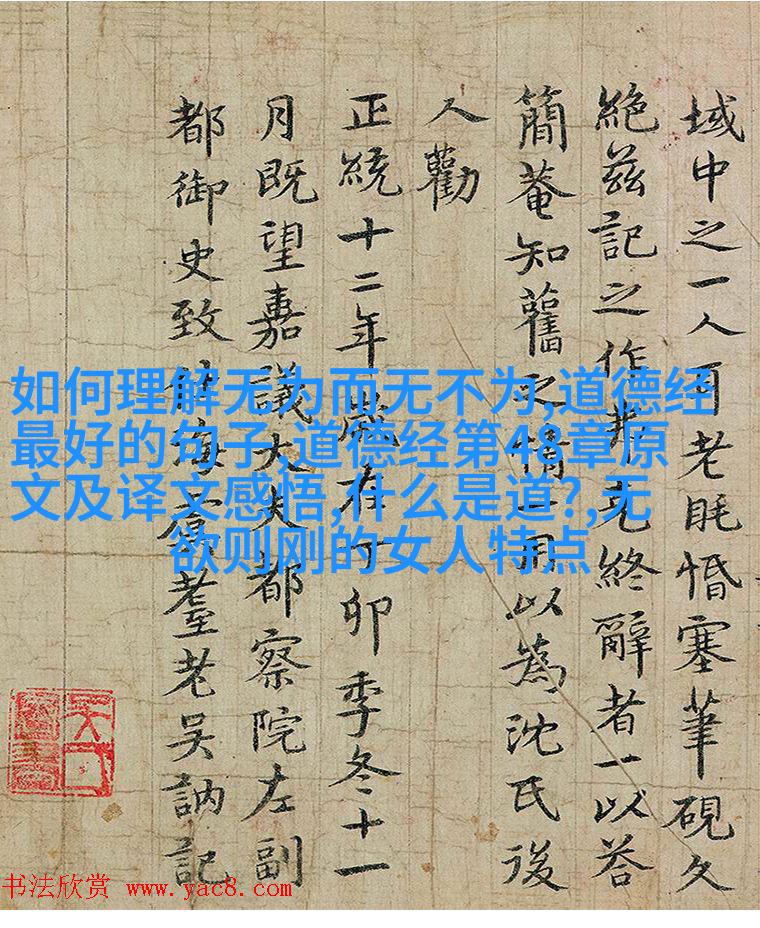 域中之一人耳老眊惛塞筆硯久
絶兹記之作弗克終辭者一以荅
簡菴知舊之情一用以為沈氏後
人勸
正統十二年歲在丁卯季冬十一
月既望嘉議大夫都察院左副
都御史致仕海虞耋老吳訥記
如何理解无为而无不为,道德经
最好的句子,道德经第48章原
文及译文感悟,什么是道?,无
欲则刚的女人特点
书法欣赏 www.yac8.com